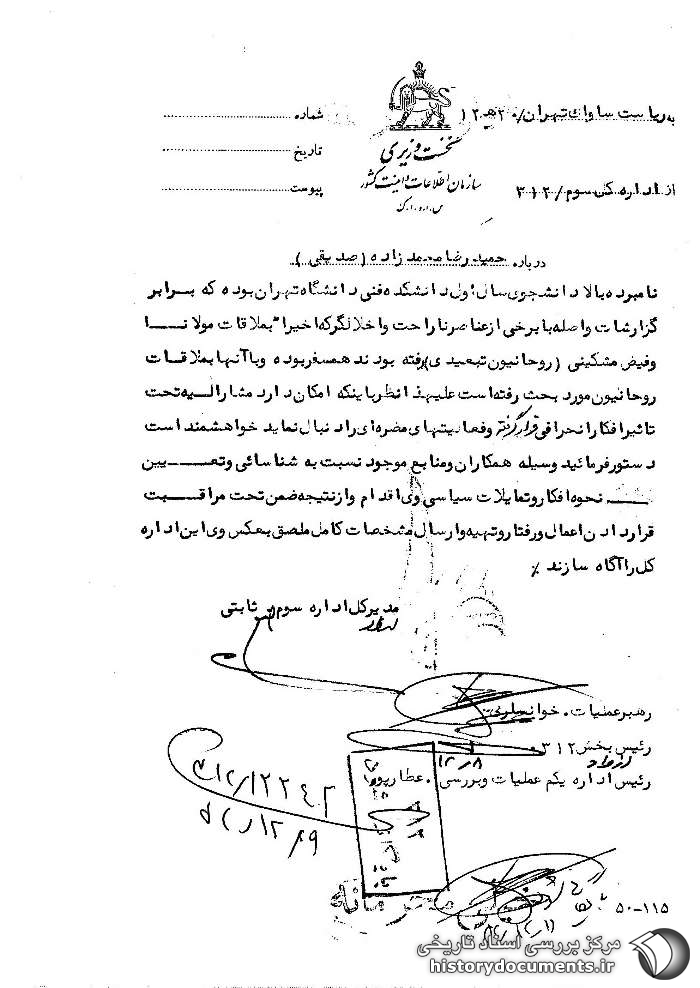 به ریاست ساواک تهران / ۲۰ ه‍ ۱۲
شماره
نخست وزیری
تاریخ
سازمان اطلاعات و امنیت کشور
از اداره کل سوم / ۳۱۲
پیوست
س.ا.و.ا.ک
درباره حمید رضا محمد زاده (صدیقی)
نامبرده بالا دانشجوی سال اول دانشکده فنی دانشگاه تهران بوده که برابر
گزارشات واصله با برخی از عناصر ناراحت و اخلالگر که اخیرا" بملاقات مولانا
وفیض مشکینی (روحانیون تبعیدی) رفته بودند همسفر بوده و با آنها بملاقات
روحانیون مورد بحث رفته است علیهذا نظر باینکه امکان دارد مشارالیه تحت
تاثیر افکار انحرافی قرار گرفته و فعالیتهای مضره ای را دنبال نماید خواهشمند است
دستور فرمائید وسیله همکاران و منابع موجود نسبت به شناسائی و تعیین
نحوه افکار و تمایلات سیاسی وی اقدام و از نتیجه ضمن تحت مراقبت
قرار دادن اعمال و رفتار و تهیه و ارسال مشخصات کامل ملصق بعکس وی این اداره
کل را آگاه سازند ٪
مدیر کل اداره سوم . ثابتی
رهبر عملیات . خوانساری
رئیس بخش ۳۱۲ .
۱۲/۸
رئیس اداره یکم عملیات و بررسی . عطارپور
۳۱۲/۱۲۲۴۲
۱۲/۹
محرمانه
۵۰-۱۱۵
مرکز بررسی اسناد تاریخی
historydocuments.ir